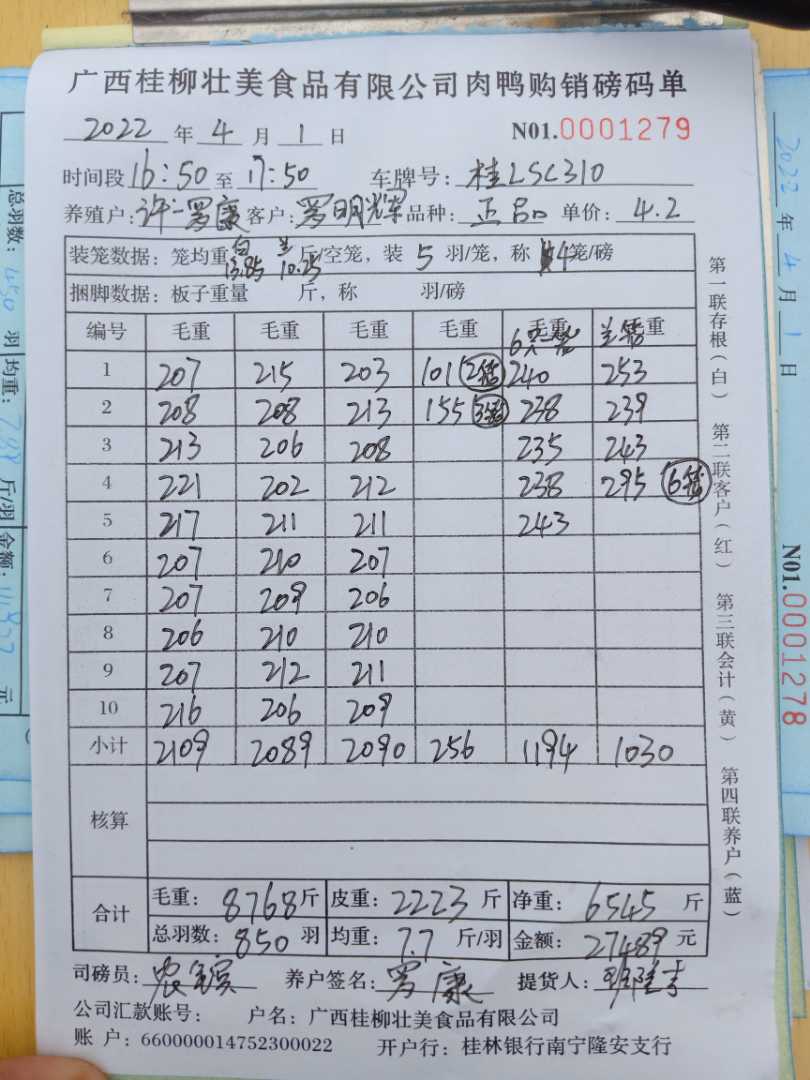 广西桂柳壮美食品有限公司肉鸭购销磅码单
2022 年 4 月 1 日 N01.0001279
时间段 16:50 至 17:50 车牌号: 桂LSC310
养殖户: 许一罗康 客户: 罗明辉 品种: 正品 单价: 4.2
装笼数据: 笼均重 白 13.85 兰 10.25 斤/空笼, 装 5 羽/笼, 称 4 笼/磅
捆脚数据: 板子重量 斤, 称 羽/磅
编号 毛重 毛重 毛重 毛重 毛重 兰笼 毛重
1 207 215 203 101 2笼 240 253
2 208 208 213 155 3笼 238 239
3 213 206 208 235 243
4 221 202 212 238 295 6笼
5 217 211 211 243
6 207 210 207
7 207 209 206
8 206 210 210
9 207 212 211
10 216 206 209
小计 2109 2089 2090 256 1194 1030
核算
合计 毛重: 8768 斤 皮重: 2223 斤 净重: 6545 斤
总羽数: 850 羽 均重: 7.7 斤/羽 金额: 27489 元
司磅员: 养户签名: 罗康 提货人:
公司汇款账号: 户名: 广西桂柳壮美食品有限公司
账 户: 660000014752300022 开户行: 桂林银行南宁隆安支行
第一联存根(白) 第二联客户(红) 第三联会计(黄) 第四联养户(蓝)
2022 年 4 月 1 日
N01.0001278
总羽数: 450 羽 均重: 斤/羽 金额: 元